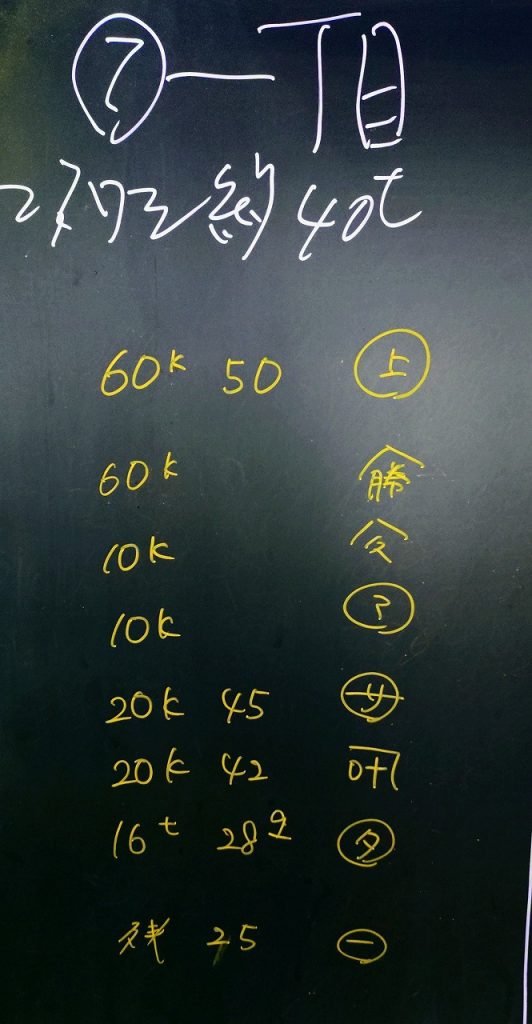 ⑦一丁目
約40t
60k 50 ㊤
60k 勝
10k 久
10k
20k 45 サ
20k 42 叶
16t 28 夕
残 25 ㊀